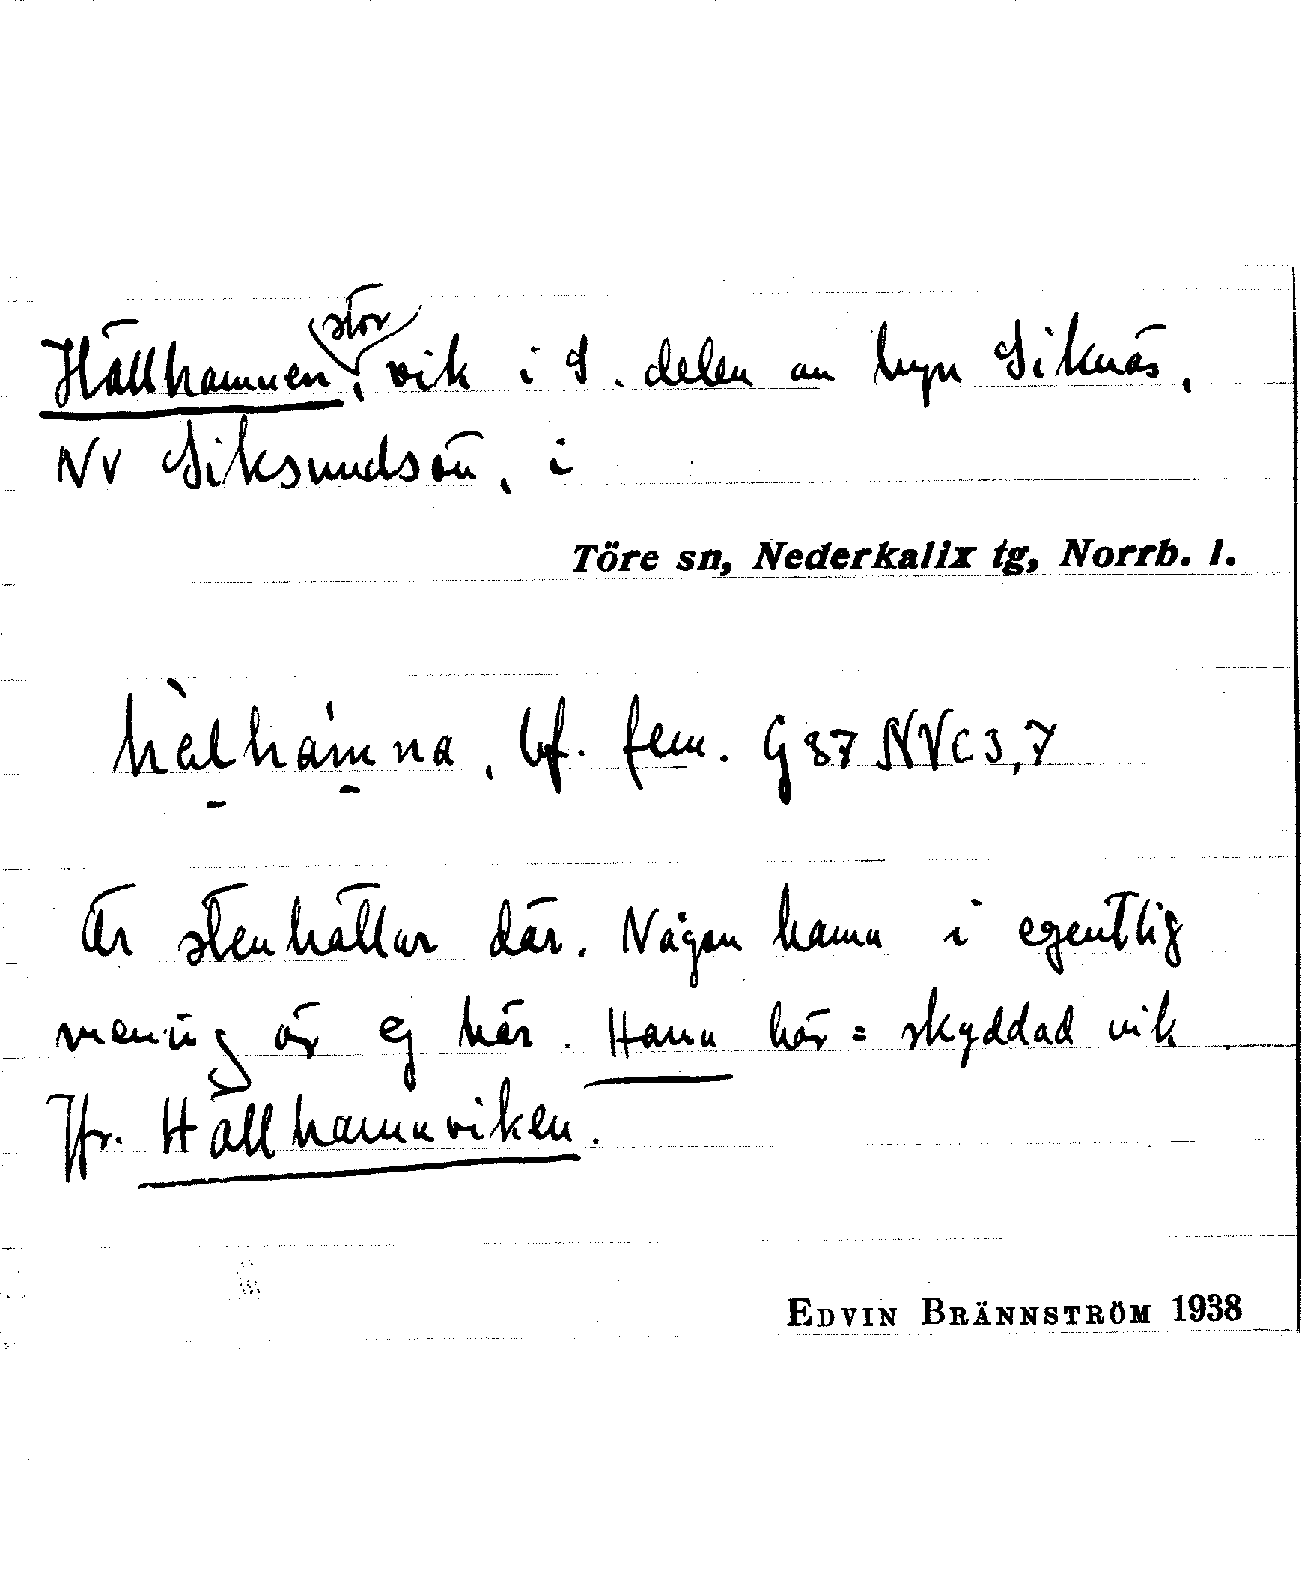 Hällhamnen, stor vik i S. delen av byn Siknäs,
NV Siksundsön, i
Töre sn, Nederkalix tg, Norrb. l.
hèlhámna, bf. fem. G 87 NVC 3,7
Är stenhällar där. Någon hamn i egentlig
mening är ej här. Hamn här = skyddad vik
Jfr. Hällhamnviken.
EDVIN BRÄNNSTRÖM 1938